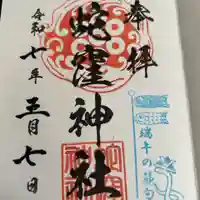 奉拝
蛇窪神社
令和七年
五月七日
端午の節句